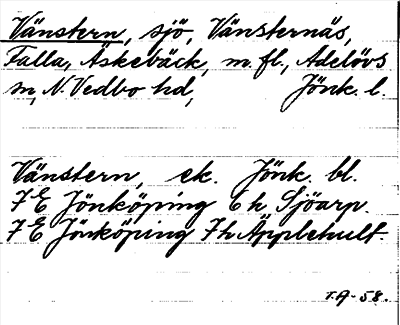 Vänstern, sjö, Vänsternäs,
Falla, Äskebäck, m. fl., Adelövs
sn, N. Vedbo hd, Jönk. l.
Vänstern, ek. Jönk. bl.
7E Jönköping 6h Sjöarp.
7E Jönköping 7h Äpplehult.
T.A-58.